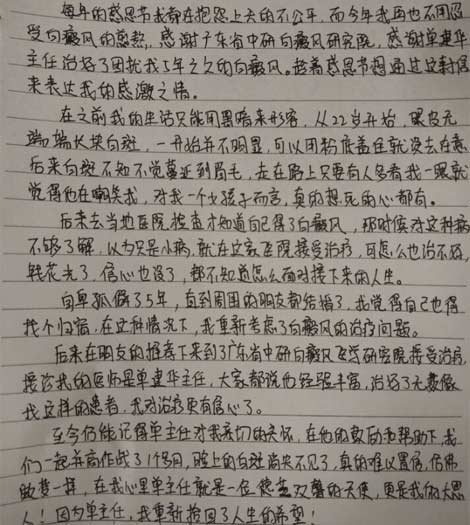 每年的感恩节我都在抱怨上天的不公平，而今年我再也不用忍
受白癜风的忧愁，感谢广东省中研白癜风研究院，感谢单建华
主任治好了困扰我5年之久的白癜风。趁着感恩节想通过这封信
来表达我的感激之情。
在之前我的生活只能用黑暗来形容，从22岁开始，眼皮无
端端长块白斑，一开始并不明显，可以用粉底盖住就没去在意
后来白斑不知不觉蔓延到眉毛，走在路上只要有人多看我一眼就
觉得他在嘲笑我，对我一个女孩子而言，真的想死的心都有。
后来去当地医院检查才知道自己得了白癜风，那时候对这种病
不够了解，以为只是小病，就在这家医院接受治疗，可怎么也治不好，
钱花光了，信心也没了，都不知道怎么面对接下来的人生。
自卑孤僻了5年，直到周围的朋友都结婚了，我觉得自己也得
找个归宿，在这种情况下，我重新考虑了白癜风的治疗问题。
后来在朋友的推荐下来到了广东省中研白癜风医学研究院接受治疗，
接诊我的医师是单建华主任，大家都说他经验丰富，治好了无数像
我这样的患者，我对治疗更有信心了。
至今仍能记得单主任对我亲切的关怀，在他的鼓励和帮助下，我
们一起并肩作战了11个多月，脸上的白斑消失不见了，真的难以置信，仿佛
做梦一样，在我心里单主任就是一位德艺双馨的天使，更是我的大恩
人！因为单主任，我重新拾回了人生的希望！